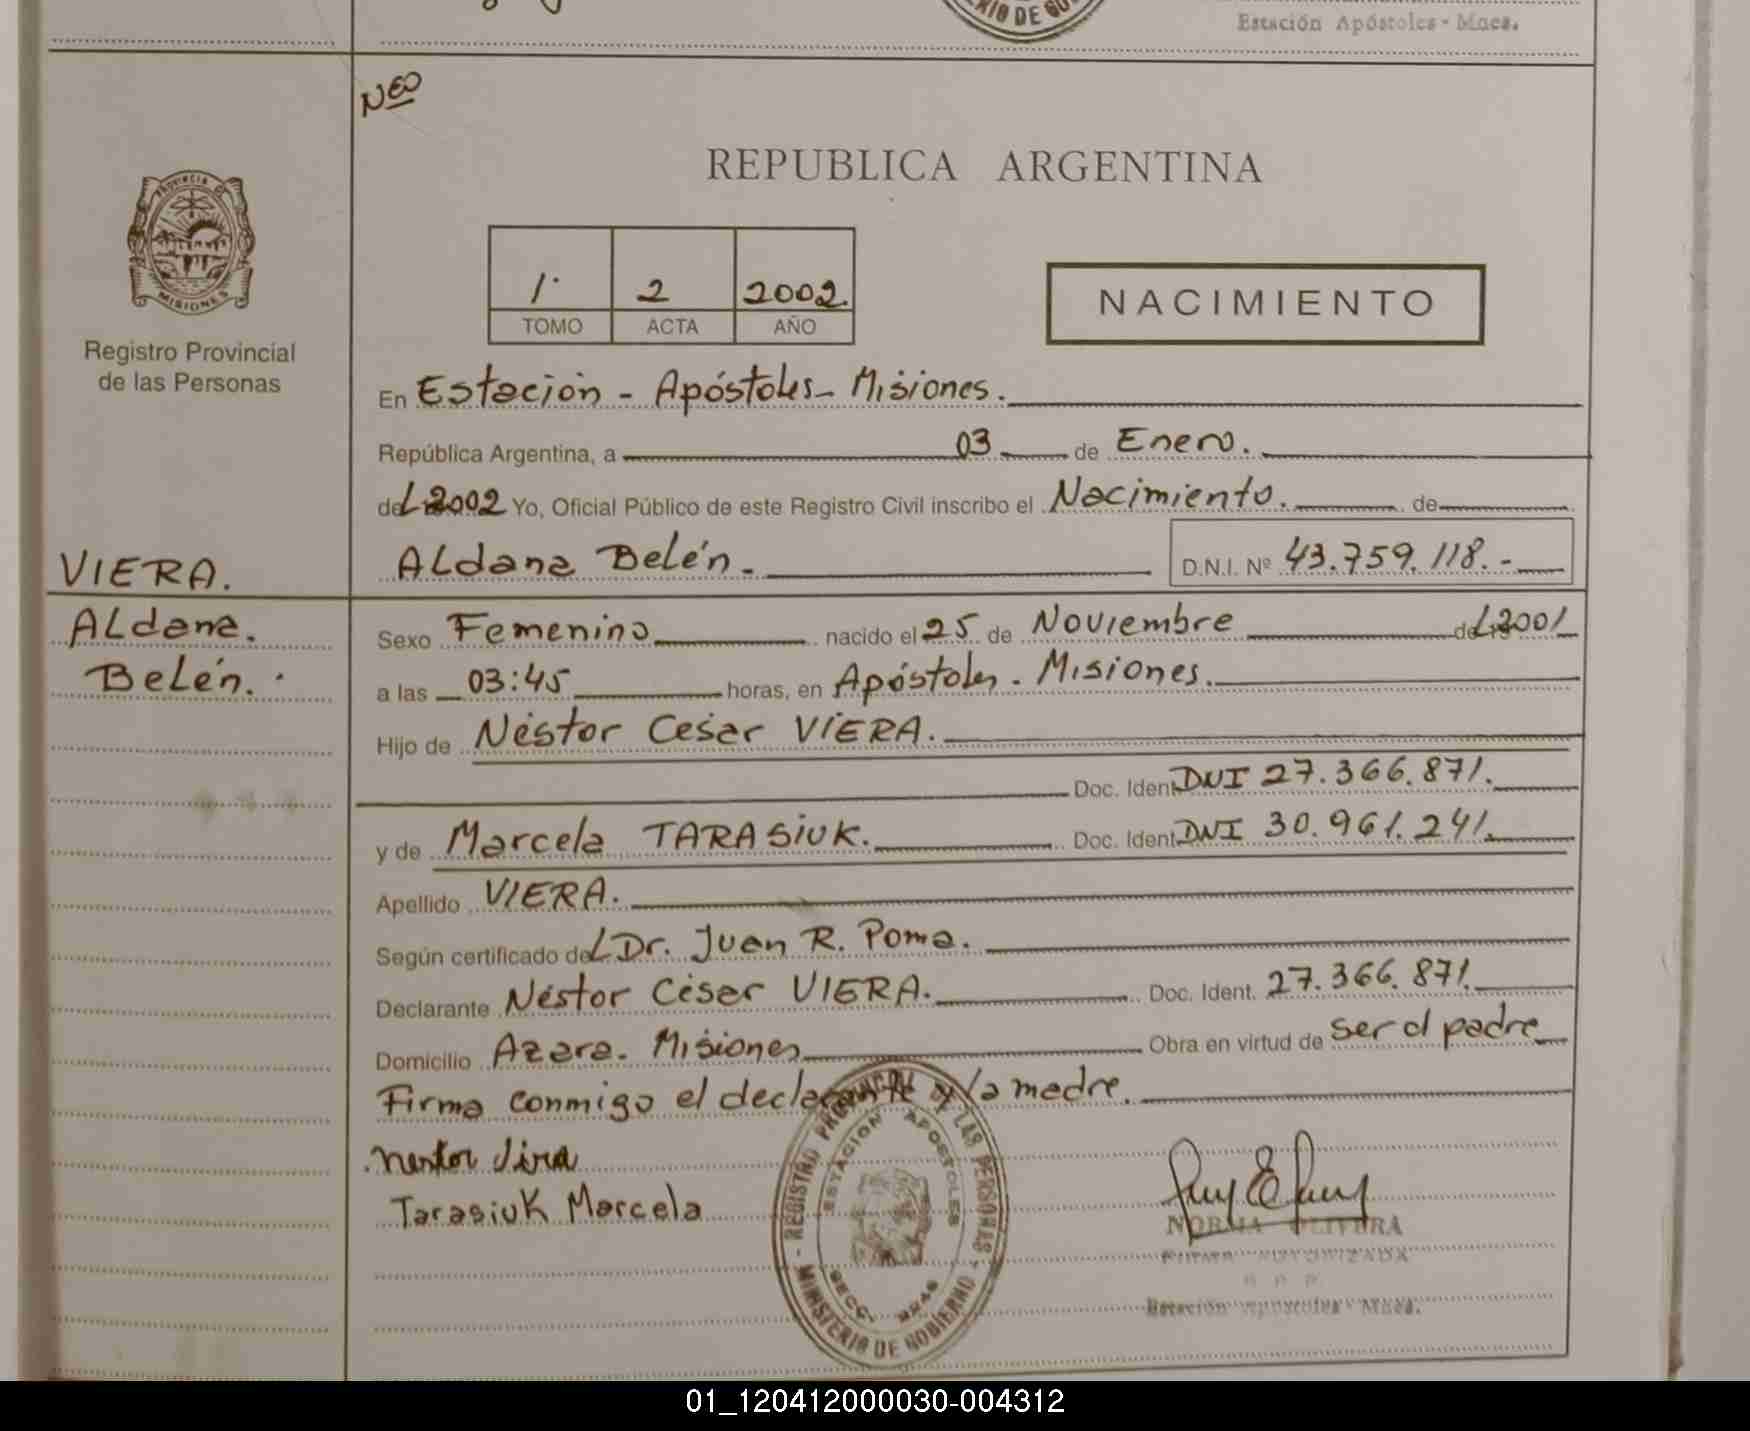 RIO DE GO
Estación Apóstoles - Mnes.
Neo
REPUBLICA ARGENTINA
Provincia de
MISIONES
1. 2 2002.
TOMO ACTA AÑO
NACIMIENTO
Registro Provincial
de las Personas
En Estación - Apóstoles - Misiones.
República Argentina, a 03 de Enero.
del 2002 Yo, Oficial Público de este Registro Civil inscribo el Nacimiento. de
VIERA.
Aldana Belén. - D.N.I. Nº 43.759.118.-
Aldana.
Belén.
Sexo Femenino nacido el 25 de Noviembre del 2001
a las 03:45 horas, en Apóstoles. Misiones.
Hijo de Néstor César VIERA.
Doc. Ident DNI 27.366.871.
y de Marcela TARASIUK. Doc. Ident DNI 30.961.241.
Apellido VIERA.
Según certificado del Dr. Juan R. Poma.
Declarante Néstor César VIERA. Doc. Ident. 27.366.871.
Domicilio Azara. Misiones Obra en virtud de ser el padre
Firma conmigo el declarante y la madre.
Nestor Vira
Tarasiuk Marcela
- REGISTRO PROVINCIAL DE LAS PERSONAS - MINISTERIO DE GOBIERNO
ESTACION APOSTOLES
SECC.
NORMA OLIVERA
FIRMA AUTORIZADA
Estación Apóstoles - Mnes.
01_120412000030-004312